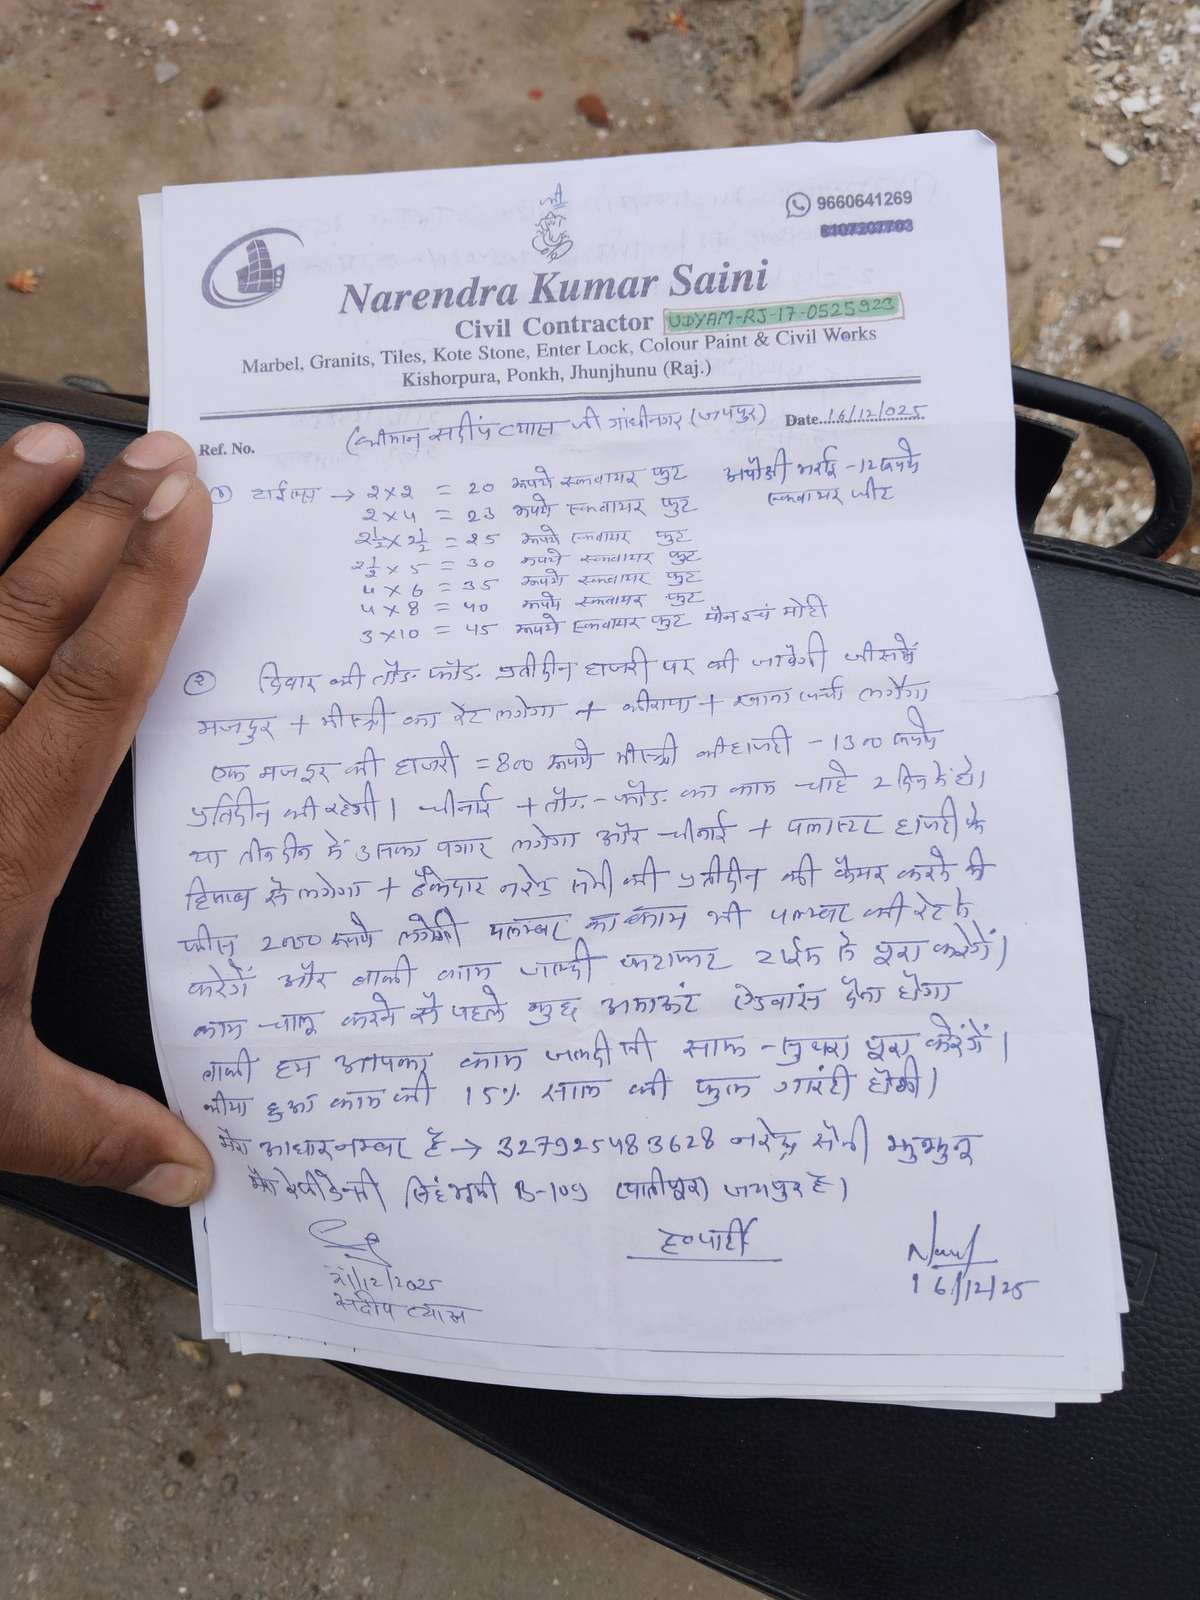 श्री
9660641269
8107207703
Narendra Kumar Saini
Civil Contractor UDYAM-RJ-17-0525923
Marbel, Granits, Tiles, Kote Stone, Enter Lock, Colour Paint & Civil Works
Kishorpura, Ponkh, Jhunjhunu (Raj.)
Ref. No. (श्रीमान् सदीप व्यास जी गांधीनगर (जयपुर) Date 16/12/025
१ टाईल्स → 2×2 = 20 रूपये स्कवायर फुट अपोक्षी भर्राई - 12 रूपये
2×4 = 23 रूपये स्कवायर फुट स्कवायर फीट
2½×2½ = 25 रूपये स्कवायर फुट
2½×5 = 30 रूपये स्कवायर फुट
4×6 = 35 रूपये स्कवायर फुट
4×8 = 40 रूपये स्कवायर फुट
3×10 = 45 रूपये स्कवायर फुट पौन इचं मोटी
२ दिवार की तौड-फौड- प्रतीदीन हाजरी पर की जायेगी जीसमें
मजदुर + मीस्त्री का रेट लगेगा + कीराया + खाना खर्चा लगेगा
एक मजदुर की हाजरी = 800 रूपये मीस्त्री की हाजरी - 1300 रूपये
प्रतिदीन की रहेगी। चीनाई + तौड-फौड- का काम चाहे 2 दिन में हो।
या तीन दीन में उसका पगार लगेगा और चीनाई + पलास्टर हाजरी के
हिसाब से लगेगा + ठेकेदार नरेन्द्र सैनी की प्रतीदीन की केयर करने की
फीस 2000 रूपये लगेगी पलम्बर का काम भी पलम्बर की रेट से
करेगें और बाकी काम जल्दी फटाफट टाईम से पूरा करेगें।
काम चालु करने से पहले कुछ अमाऊंट ऐडवांस देना होगा
बाकी हम आपका काम जल्दी जी साफ-सुथरा पूरा करेगें।
कीया हुआ काम की 15% साल की फुल गारंटी होगी।
मेरा आधार नम्बर है → 327925483628 नरेन्द्र सैनी झुन्झुनू
मेरा रेजीडेन्सी सिहं भूमी B-109 (पातीपूरा) जयपुर है।
21/12/2025
सदीप व्यास
ह० पार्टी
16/12/25